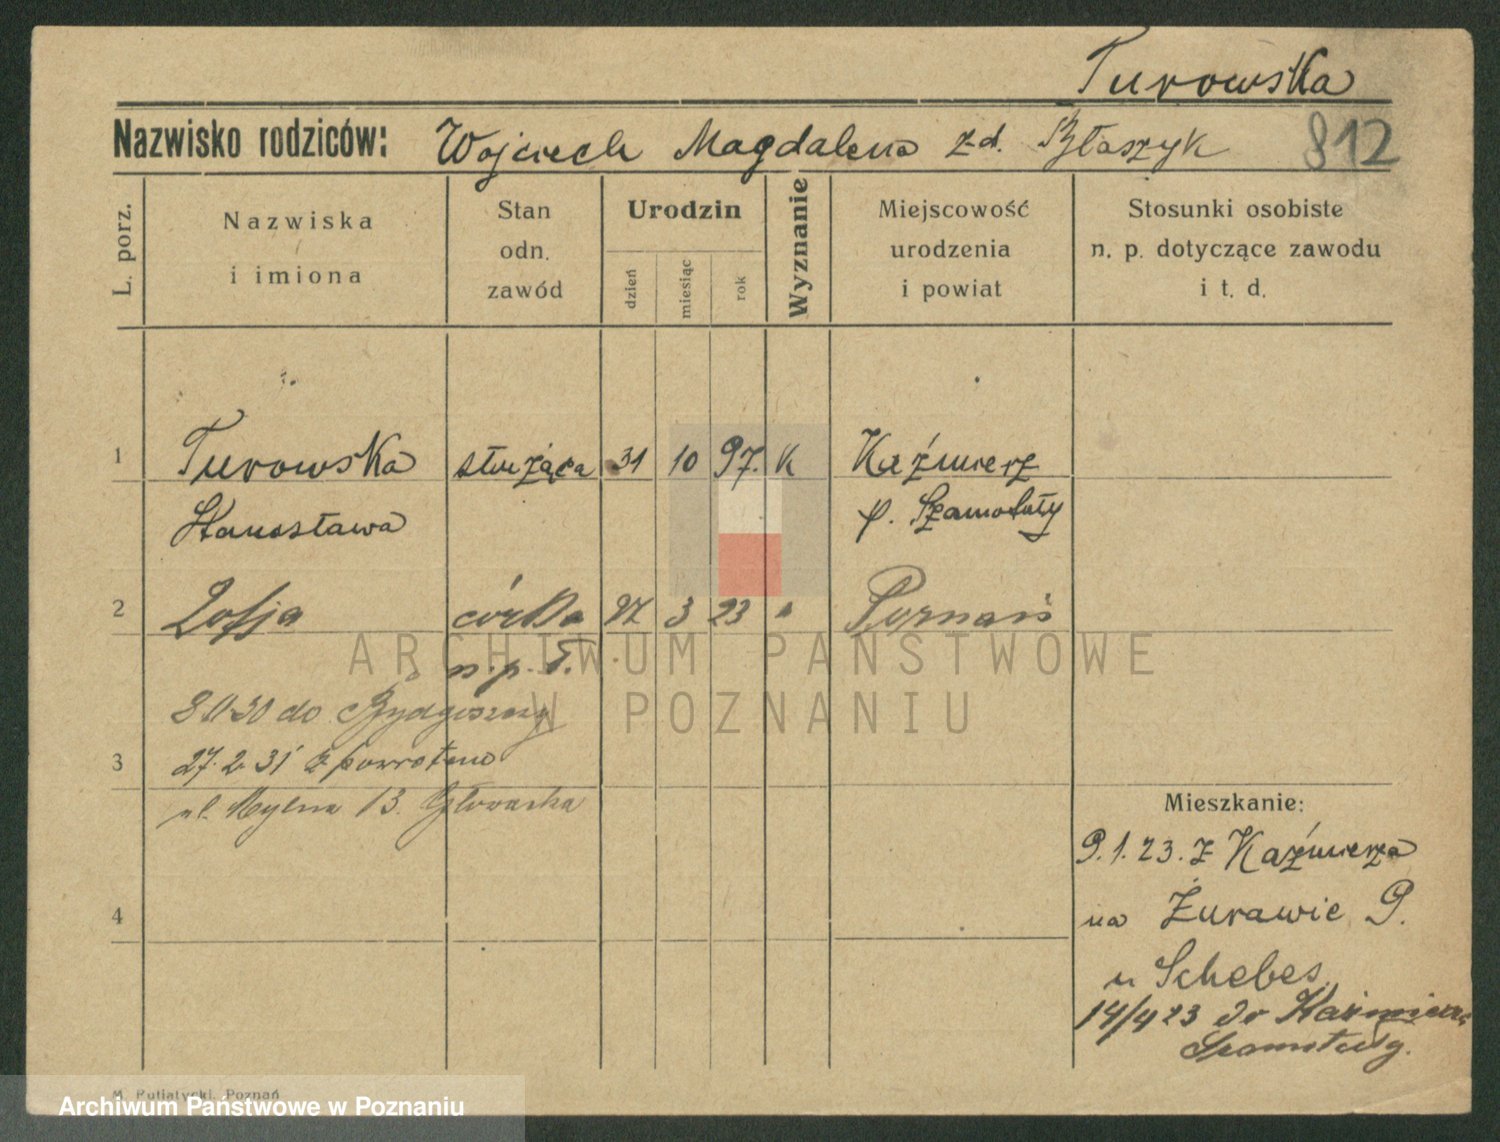 Turowska
Nazwisko rodziców: Wojciech Magdalena zd. Błaszyk 812
L. porz.
Nazwiska i imiona
Stan odn. zawód
Urodzin
dzień miesiąc rok
Wyznanie
Miejscowość urodzenia i powiat
Stosunki osobiste n. p. dotyczące zawodu i t. d.
1 Turowska służąca 31 10 97. K Kaźmierz
Stanisława p. Szamotuły
2 Zofja córka 27 3 23 Poznań
n. p. T.
ARCHIWUM PAŃSTWOWE
W POZNANIU
30 do Bydgoszczy
3 27.2.31 z powrotem
ul. Mylna 13.
Mieszkanie:
9.1.23. z Kaźmierza
4 na Żurawie 9.
u Schebes
14/4 23 do Kaźmierz
Szamotuły.
M. Putiatycki, Poznań
Archiwum Państwowe w Poznaniu